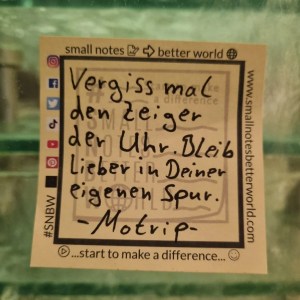 small notes better world
Vergiss mal
den Zeiger
der Uhr. Bleib
lieber in Deiner
eigenen Spur.
- Motrip -
#SNBW
www.smallnotesbetterworld.com
...start to make a difference...